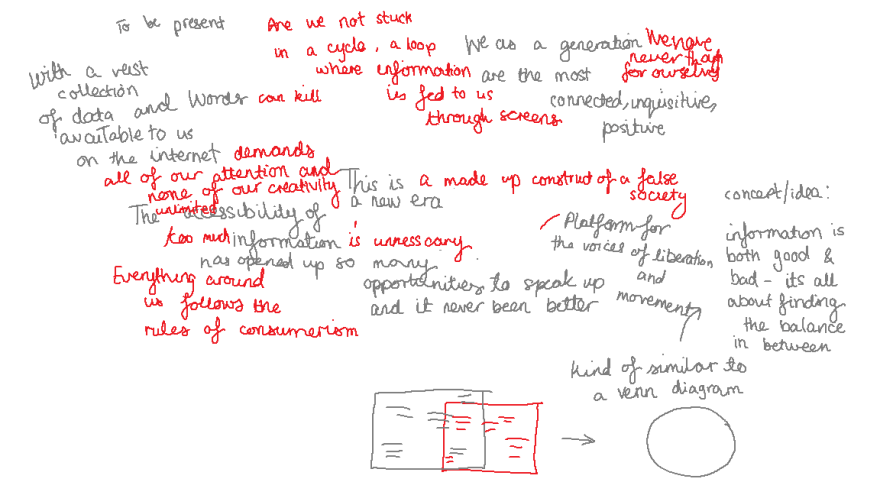 To be present
Are we not stuck
in a cycle, a loop
where information
is fed to us
through screens
We as a generation
are the most
connected, inquisitive,
positive
We have
never than
for ourselves
With a vast
collection
of data and Words can kill
available to us
on the internet demands
all of our attention and
none of our creativity
unlimited
This is a made up construct of a false
society
a new era
The accessibility of
too much information is unnessecary
has opened up so many
opportunities to speak up
and it never been better
Everything around
us follows the
rules of consumerism
Platform for
the voices of liberation
and
movement
concept/idea:
information is
both good &
bad - its all
about finding
the balance
in between
kind of similar to
a venn diagram